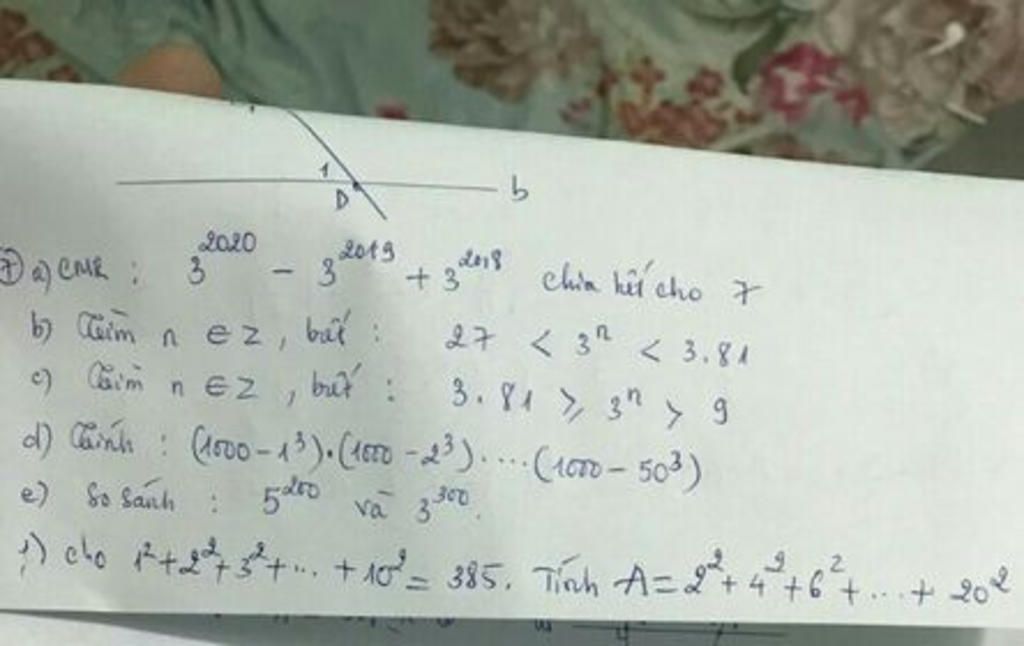 1
D
b
7 a) CMR : 3²⁰²⁰ - 3²⁰¹⁹ + 3²⁰¹⁸ chia hết cho 7
b) Tìm n ∈ Z, biết : 27 < 3ⁿ < 3.81
c) Tìm n ∈ Z, biết : 3.81 ≥ 3ⁿ > 9
d) Tính : (1000 - 1³).(1000 - 2³)....(1000 - 50³)
e) So sánh : 5²⁰⁰ và 3³⁰⁰.
f) Cho 1² + 2² + 3² + ... + 10² = 385. Tính A = 2² + 4² + 6² + ... + 20²